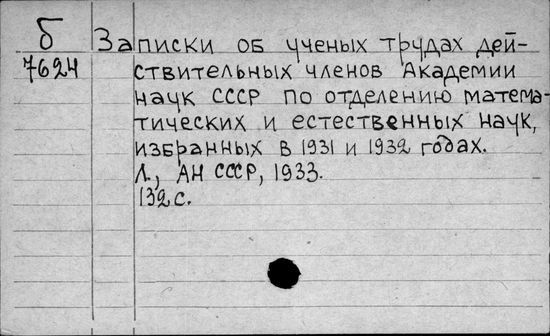 б
7624
Записки об ученых трудах дей-
ствительных членов Академии
наук СССР по отделению матема-
тических и естественных наук,
избранных в 1931 и 1932 годах.
Л., АН СССР, 1933.
132 с.